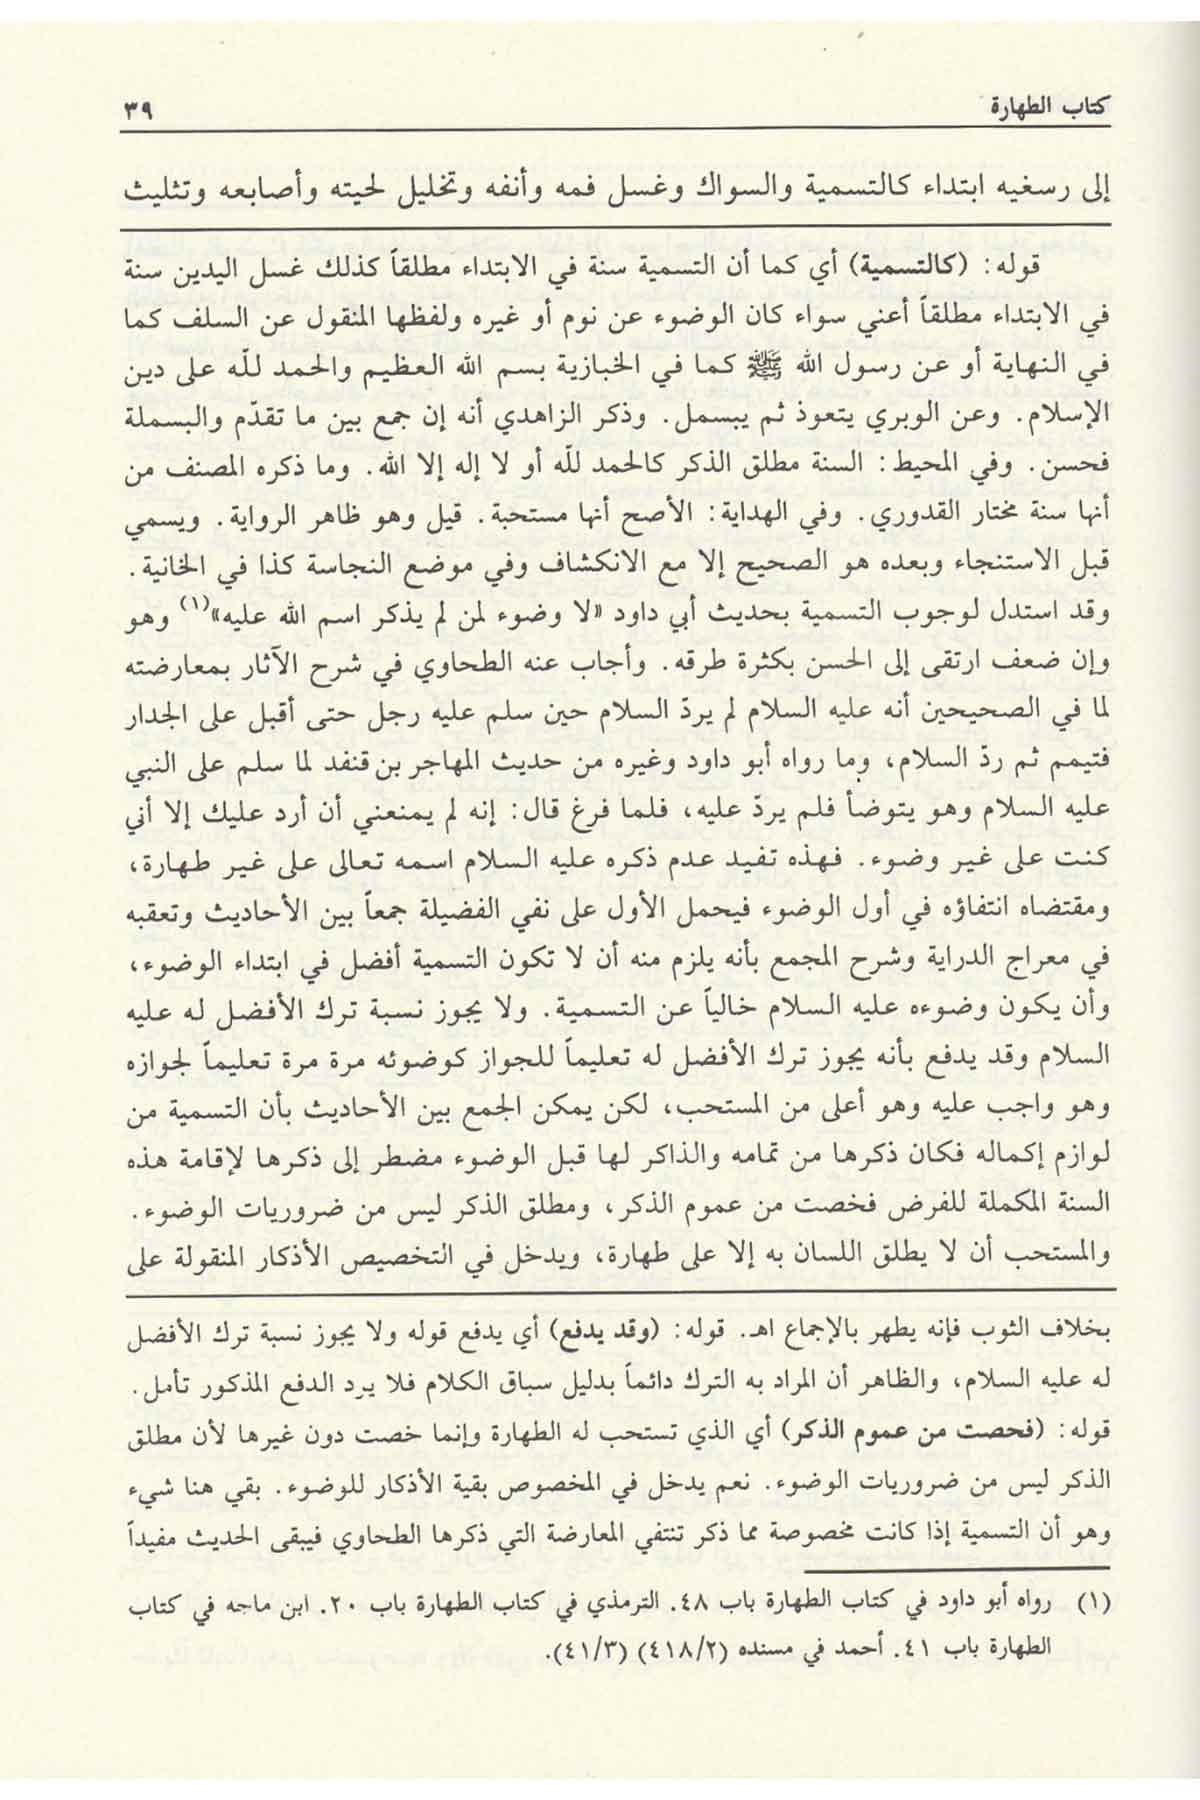 كتاب الطهارة
٣٩
إلى رسغيه ابتداء كالتسمية والسواك وغسل فمه وأنفه وتخليل لحيته وأصابعه وتثليث
قوله: (كالتسمية) أي كما أن التسمية سنة في الابتداء مطلقاً كذلك غسل اليدين سنة
في الابتداء مطلقاً أعني سواء كان الوضوء عن نوم أو غيره ولفظها المنقول عن السلف كما
في النهاية أو عن رسول الله ﷺ كما في الخبازية بسم الله العظيم والحمد للّه على دين
الإسلام. وعن الوبري يتعوذ ثم يبسمل. وذكر الزاهدي أنه إن جمع بين ما تقدّم والبسملة
فحسن. وفي المحيط: السنة مطلق الذكر كالحمد للّه أو لا إله إلا الله. وما ذكره المصنف من
أنها سنة مختار القدوري. وفي الهداية: الأصح أنها مستحبة. قيل وهو ظاهر الرواية. ويسمي
قبل الاستنجاء وبعده هو الصحيح إلا مع الانكشاف وفي موضع النجاسة كذا في الخانية.
وقد استدل لوجوب التسمية بحديث أبي داود «لا وضوء لمن لم يذكر اسم الله عليه»(١) وهو
وإن ضعف ارتقى إلى الحسن بكثرة طرقه. وأجاب عنه الطحاوي في شرح الآثار بمعارضته
لما في الصحيحين أنه عليه السلام لم يردّ السلام حين سلم عليه رجل حتى أقبل على الجدار
فتيمم ثم ردّ السلام، وما رواه أبو داود وغيره من حديث المهاجر بن قنفد لما سلم على النبي
عليه السلام وهو يتوضأ فلم يردّ عليه، فلما فرغ قال: إنه لم يمنعني أن أرد عليك إلا أني
كنت على غير وضوء. فهذه تفيد عدم ذكره عليه السلام اسمه تعالى على غير طهارة،
ومقتضاه انتفاؤه في أول الوضوء فيحمل الأول على نفي الفضيلة جمعاً بين الأحاديث وتعقبه
في معراج الدراية وشرح المجمع بأنه يلزم منه أن لا تكون التسمية أفضل في ابتداء الوضوء،
وأن يكون وضوءه عليه السلام خالياً عن التسمية. ولا يجوز نسبة ترك الأفضل له عليه
السلام وقد يدفع بأنه يجوز ترك الأفضل له تعليماً للجواز كوضوئه مرة مرة تعليماً لجوازه
وهو واجب عليه وهو أعلى من المستحب، لكن يمكن الجمع بين الأحاديث بأن التسمية من
لوازم إكماله فكان ذكرها من تمامه والذاكر لها قبل الوضوء مضطر إلى ذكرها لإقامة هذه
السنة المكملة للفرض فخصت من عموم الذكر، ومطلق الذكر ليس من ضروريات الوضوء.
والمستحب أن لا يطلق اللسان به إلا على طهارة، ويدخل في التخصيص الأذكار المنقولة على
بخلاف الثوب فإنه يطهر بالإجماع اهـ. قوله: (وقد يدفع) أي يدفع قوله ولا يجوز نسبة ترك الأفضل
له عليه السلام، والظاهر أن المراد به الترك دائماً بدليل سباق الكلام فلا يرد الدفع المذكور تأمل.
قوله: (فحصت من عموم الذكر) أي الذي تستحب له الطهارة وإنما خصت دون غيرها لأن مطلق
الذكر ليس من ضروريات الوضوء. نعم يدخل في المخصوص بقية الأذكار للوضوء. بقي هنا شيء
وهو أن التسمية إذا كانت مخصوصة مما ذكر تنتفي المعارضة التي ذكرها الطحاوي فيبقى الحديث مفيداً
(١) رواه أبو داود في كتاب الطهارة باب ٤٨. الترمذي في كتاب الطهارة باب ٢٠. ابن ماجه في كتاب
الطهارة باب ٤١. أحمد في مسنده (٤١٨/٢) (٤١/٣).